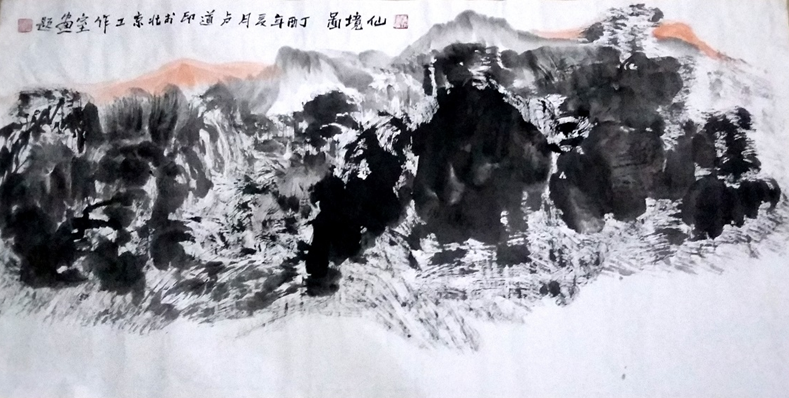 仙境啚 丁酉年辰月卢道印於北京工作室画题